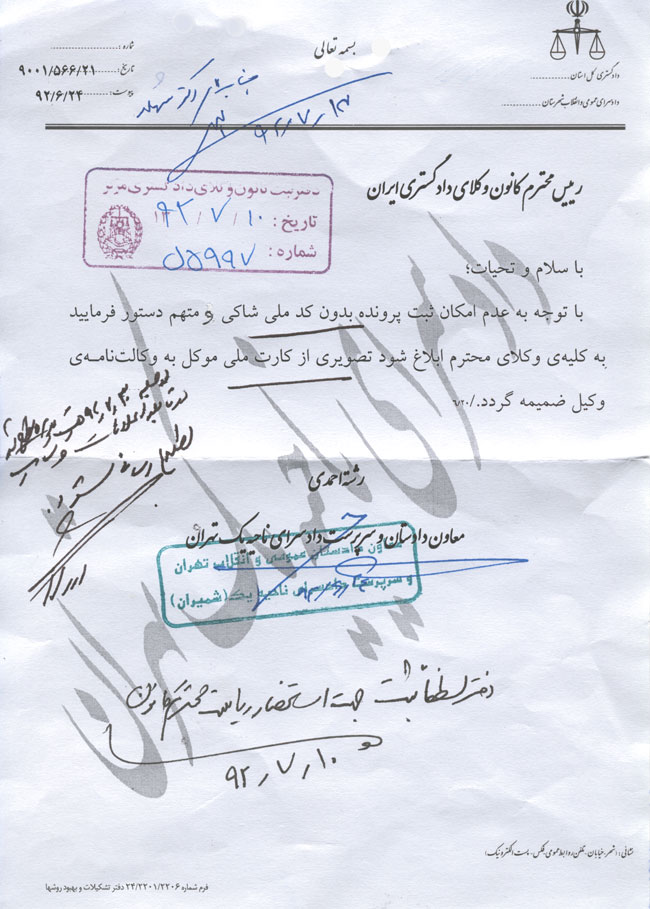 بسمه تعالی
شماره :
تاریخ: ۹۰۰۱/۵۶۶/۲۱
پیوست: ۹۲/۶/۲۴
دادگستری کل استان
دادسرای عمومی و انقلاب شهرستان
جناب آقای دکتر
۹۲/۷/۱۳
رییس محترم کانون وکلای دادگستری ایران
دفتر ثبت کانون وکلای دادگستری مرکز
تاریخ : ۹۲/۷/۱۰
شماره : ۵۹۹۷
با سلام و تحیات؛
با توجه به عدم امکان ثبت پرونده بدون کد ملی شاکی و متهم دستور فرمایید
به کلیه‌ی وکلای محترم ابلاغ شود تصویری از کارت ملی موکل به وکالت‌نامه‌ی
وکیل ضمیمه گردد./۶۲۰
رشته احمدی
معاون دادستان و سرپرست دادسرای ناحیه یک تهران
معاون دادستان عمومی و انقلاب تهران
و سرپرست دادسرای ناحیه یک (شمیران)
دفتر لطفا ثبت جهت استحضار ریاست محترم کانون
۹۲/۷/۱۰
نشانی: (شهر، خیابان، تلفن روابط عمومی، فکس، پست الکترونیک)
فرم شماره ۲۴/۲۲۰۱/۲۲۰۶ دفتر تشکیلات و بهبود روشها